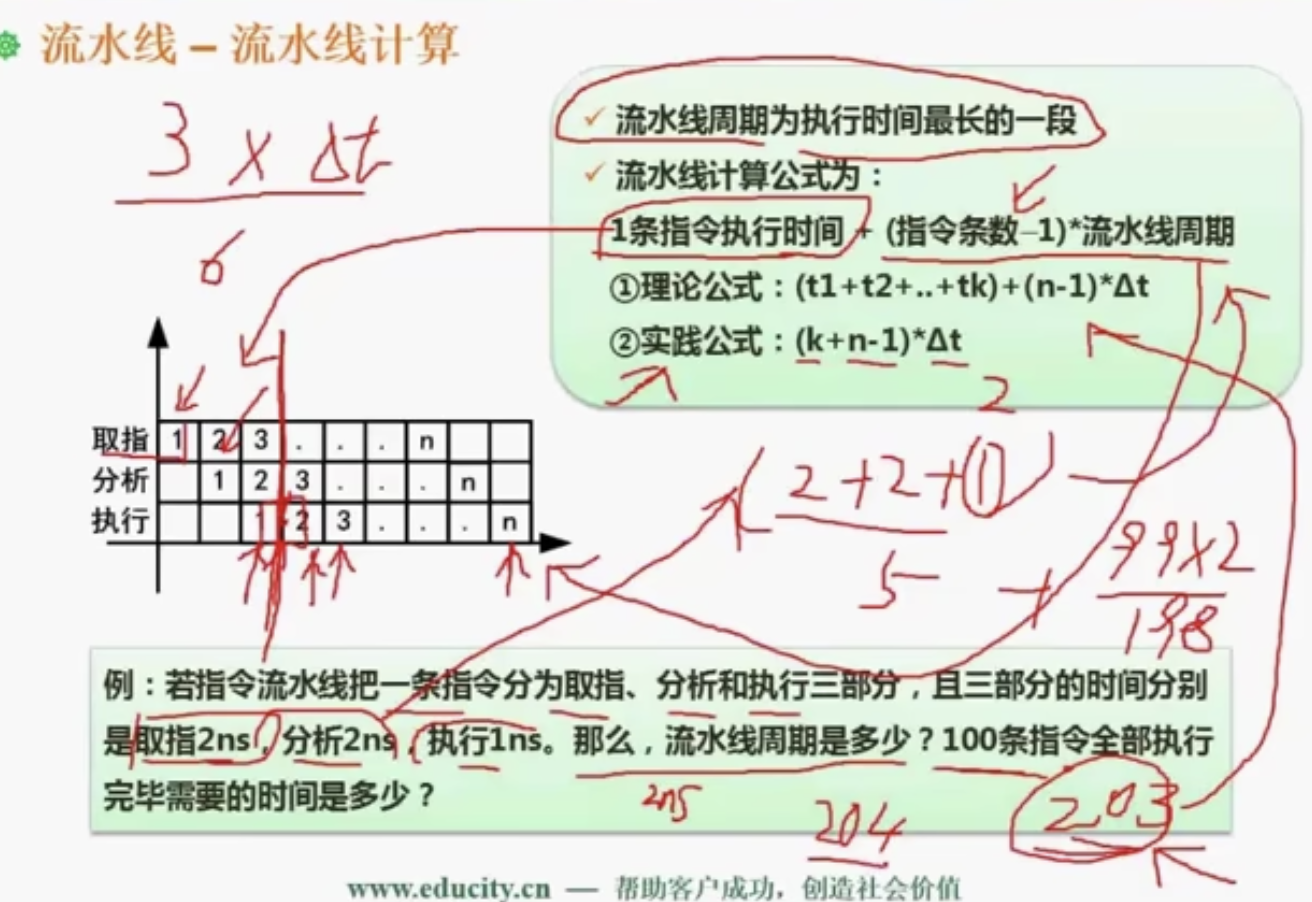 流水线 – 流水线计算
3 × Δt
6
✓ 流水线周期为执行时间最长的一段
✓ 流水线计算公式为：
1条指令执行时间 + (指令条数–1)*流水线周期
①理论公式：(t1+t2+..+tk)+(n-1)*Δt
②实践公式：(k+n-1)*Δt
2
取指 1 2 3 . . . n
分析 1 2 3 . . . n
执行 1 2 3 . . . n
(2+2+1)
5 + 99×2
198
例：若指令流水线把一条指令分为取指、分析和执行三部分，且三部分的时间分别
是取指2ns，分析2ns，执行1ns。那么，流水线周期是多少？100条指令全部执行
完毕需要的时间是多少？
2ns
204
203
www.educity.cn — 帮助客户成功，创造社会价值